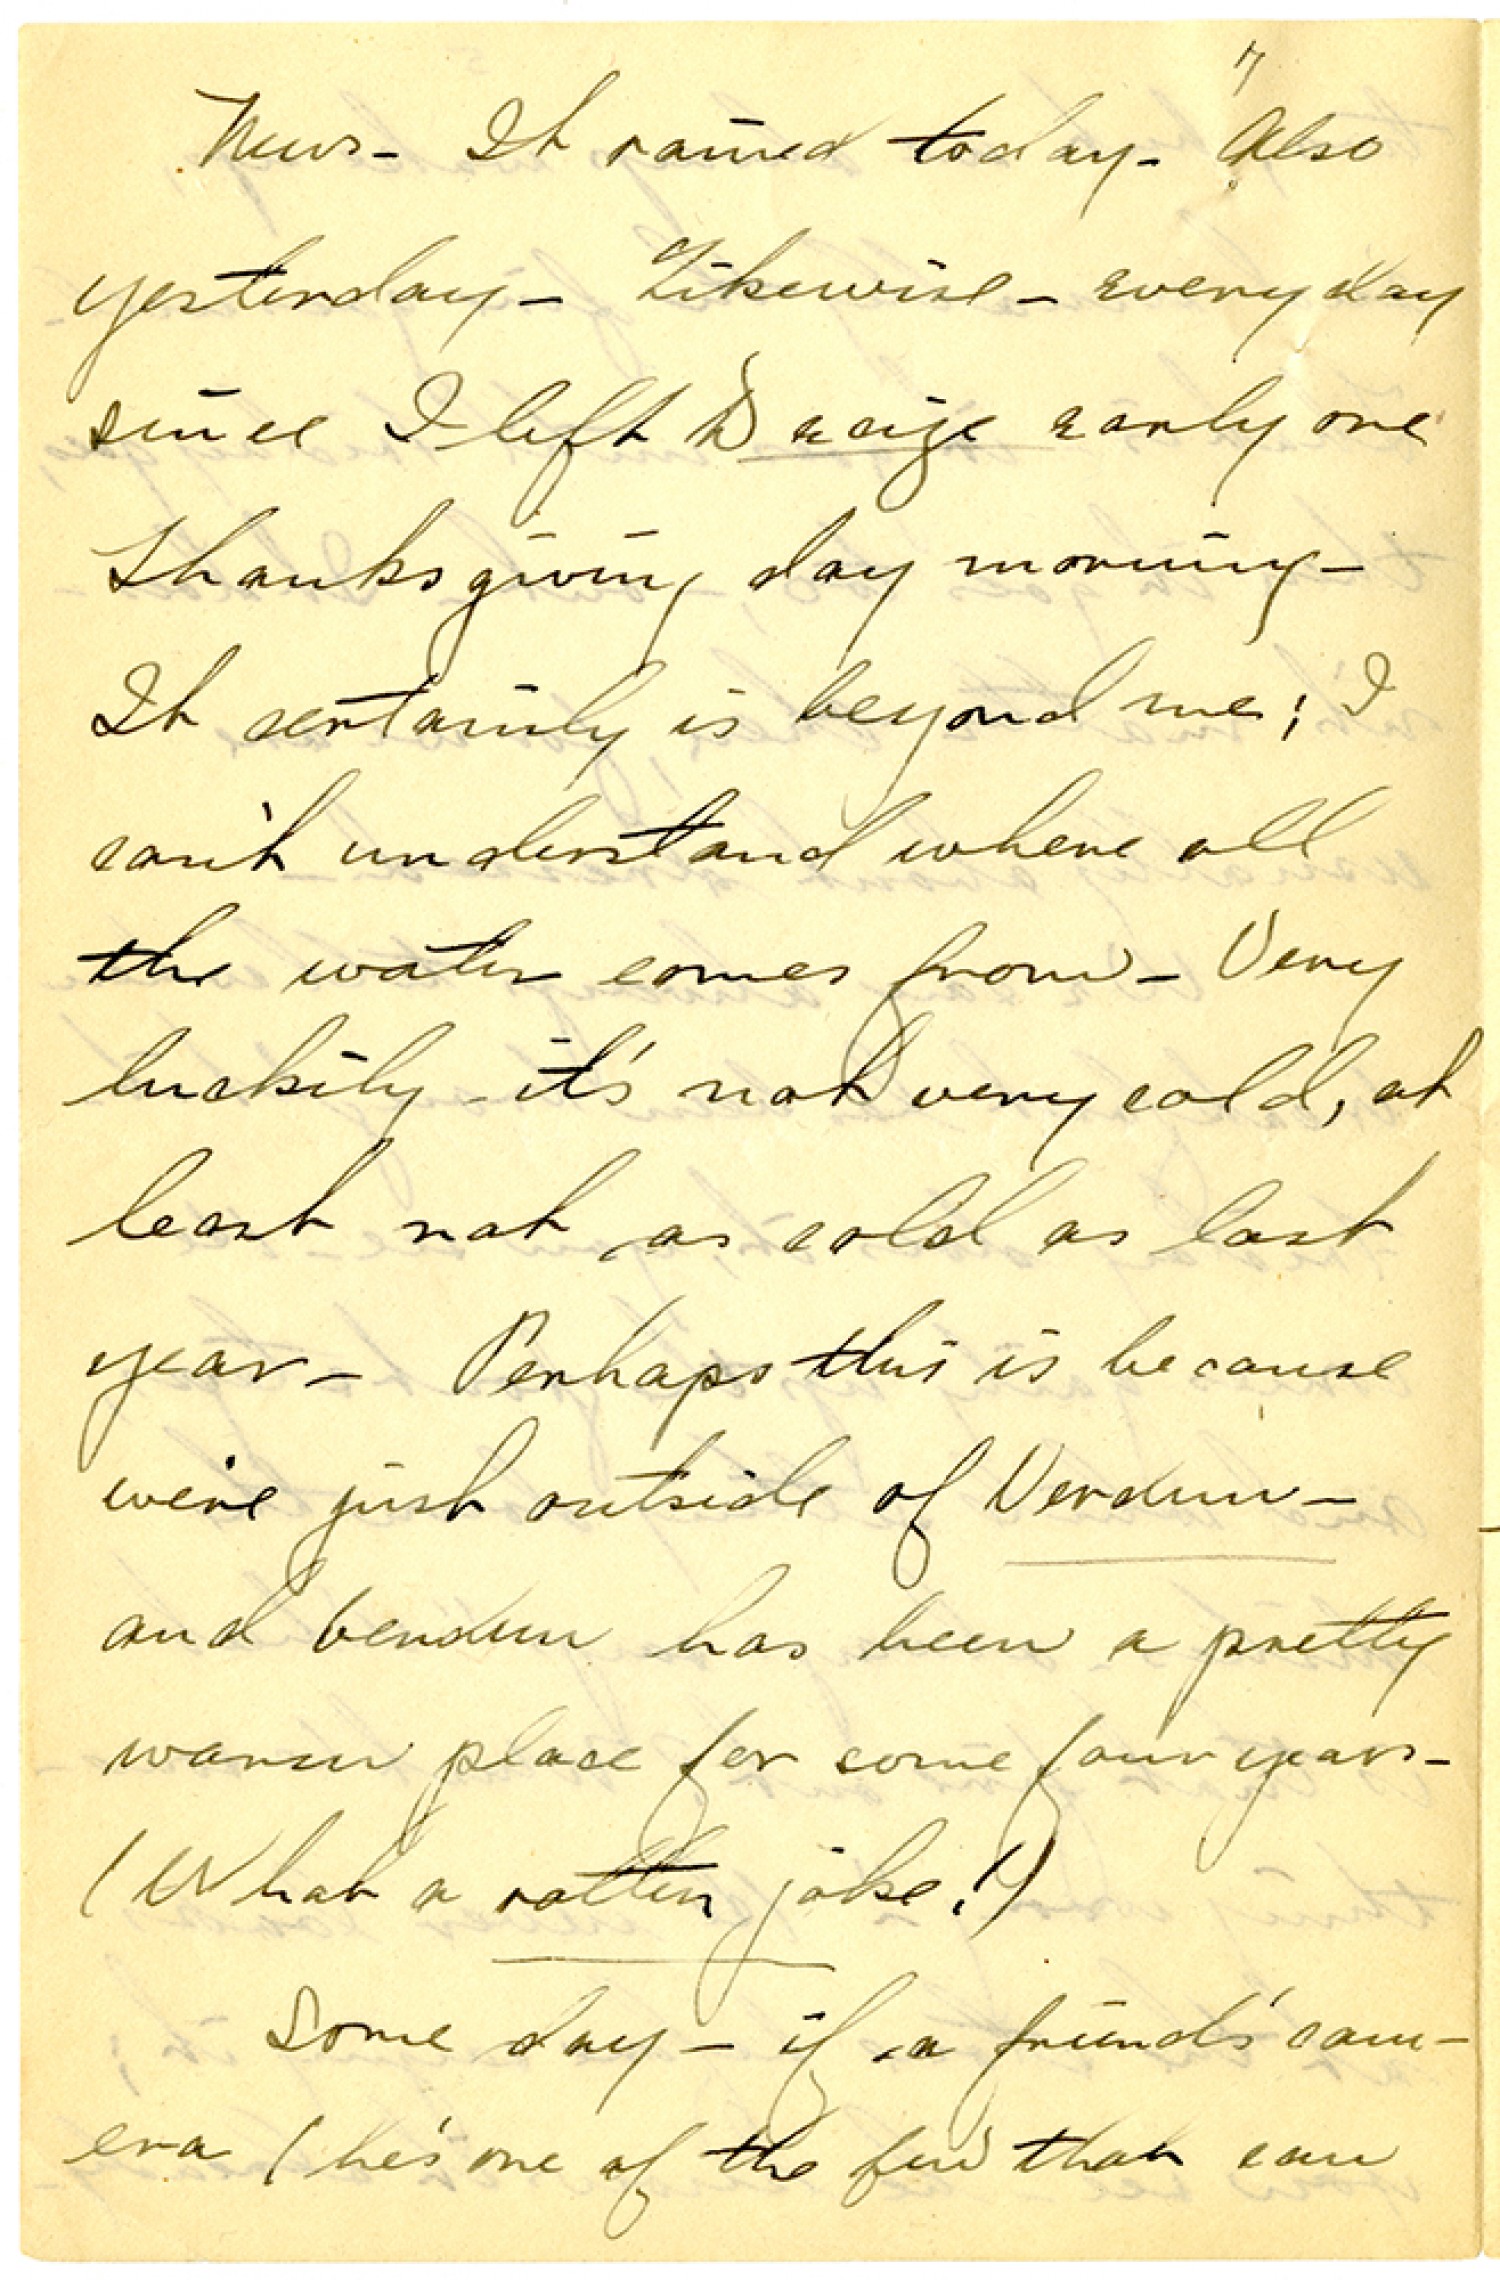 7
News- It rained today- Also
yesterday- Likewise- every day
since I left early one
Thanksgiving day morning-
It certainly is beyond me; I
can't understand where all
the water comes from- Very
luckily it's not very cold, at
least not as cold as last
year- Perhaps this is because
we're just outside of Verdun-
and Verdun has been a pretty
warm place for some four years-
(What a rotten joke!)
Some day- if a friend's cam-
era (he's one of the few that can